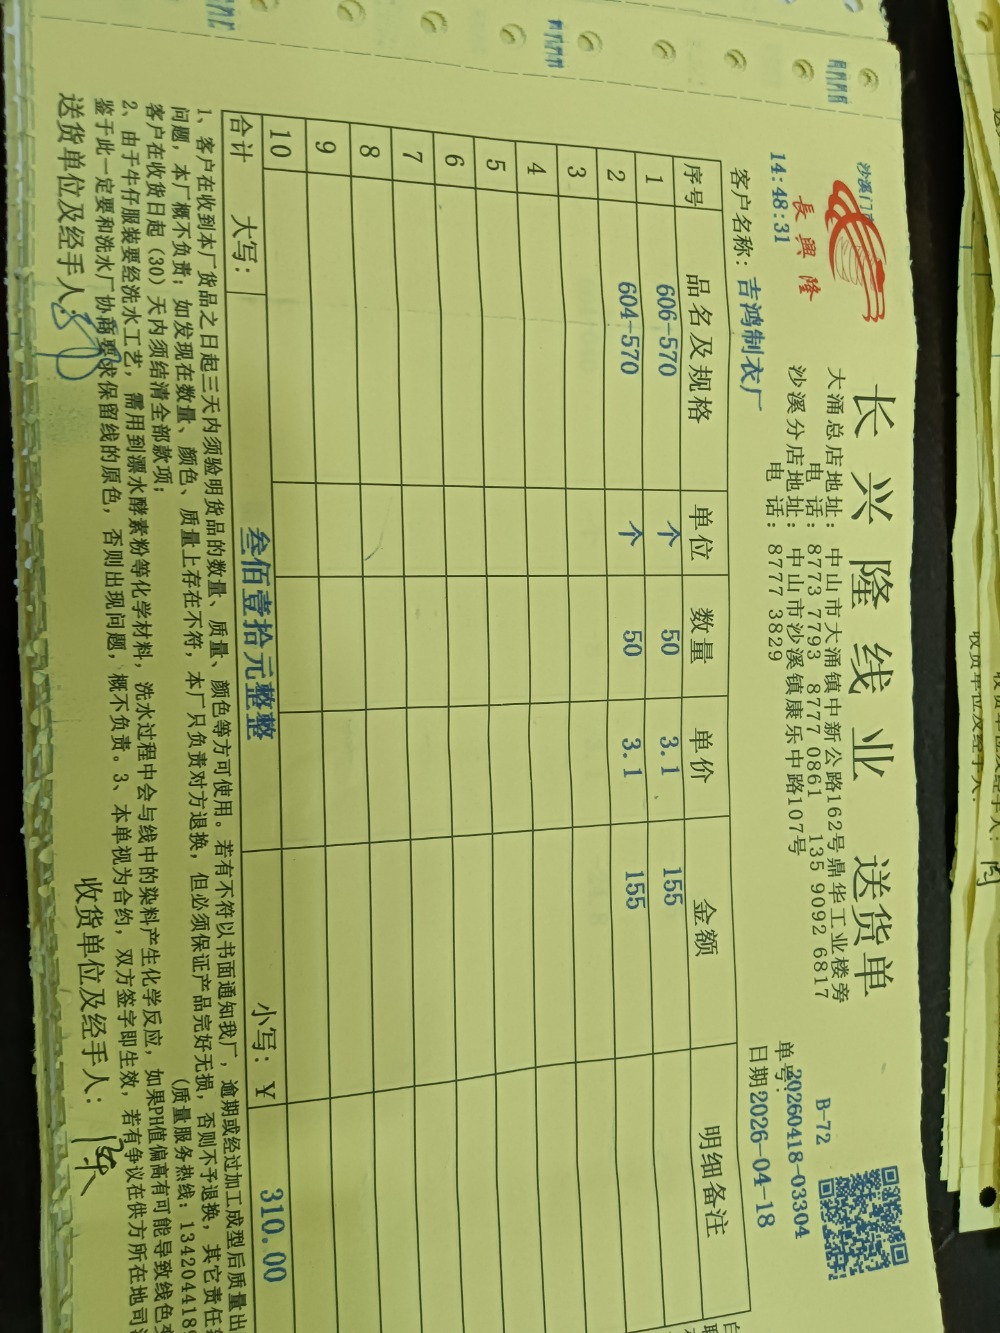 沙溪门市
長興隆
长兴隆线业 送货单
大涌总店地址：中山市大涌镇中新公路162号鼎华工业楼旁
电 话：8773 7793 8777 0861 135 9092 6817
沙溪分店地址：中山市沙溪镇康乐中路107号
电 话：8777 3829
B-72
单号：20260418-03304
14:48:31
日期2026-04-18
客户名称：吉鸿制衣厂
序号 品名及规格 单位 数量 单价 金额 明细备注
1 606-570 个 50 3.1 155
2 604-570 个 50 3.1 155
3
4
5
6
7
8
9
10
合计 大写： 叁佰壹拾元整整 小写：￥ 310.00
1、客户在收到本厂货品之日起三天内须验明货品的数量、质量、颜色等方可使用。若有不符以书面通知我厂，逾期或经过加工成型后质量出
问题，本厂概不负责；如发现在数量、颜色、质量上存在不符，本厂只负责对方退换，但必须保证产品完好无损，否则不予退换，其它责任
客户在收货日起（30）天内须结清全部款项； （质量服务热线：134204418
2、由于牛仔服装要经洗水工艺，需用到漂水酵素粉等化学材料，洗水过程中会与线中的染料产生化学反应，如果PH值偏高有可能导致线色变
鉴于此一定要和洗水厂协商要求保留线的原色，否则出现问题，概不负责。3、本单视为合约，双方签字即生效，若有争议在供方所在地司
送货单位及经手人： 收货单位及经手人：
收货单位及经手人：